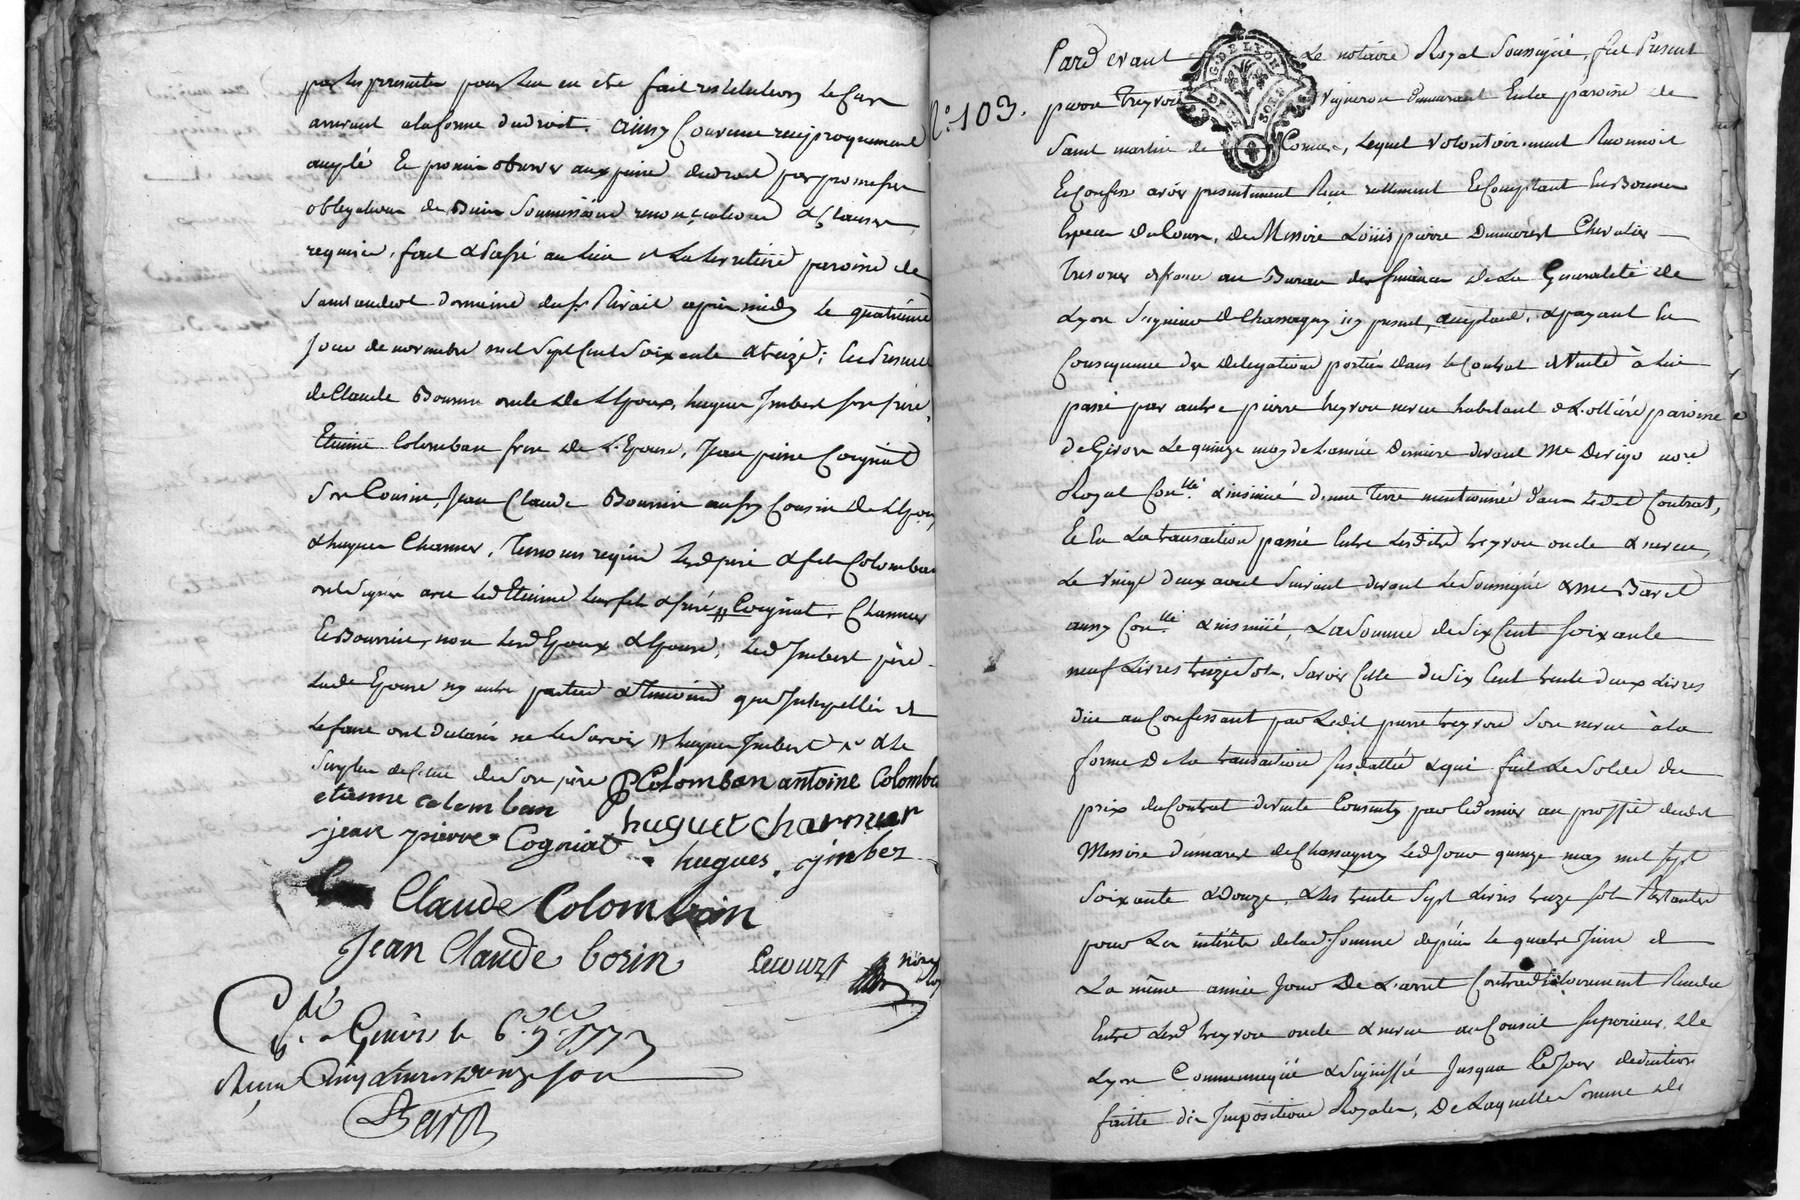 par les presentes pour leur en etre fait restitution le cas
arrivant a la forme du droit. ainsy Convenu reciproquement
accepté Et promis observer aux peines de droit par promesses
obligations de Biens Soumissions renonciations & Clauses
requises, fait & passé au lieu de paroisse de
Saint andeol domaine du sr. Rivail apres midy le quatrieme
Jour de novembre mil sept Cent Soixante & treize; En Presence
de Claude Bourrin oncle de L'Epoux, hugues Imbert son frere,
Etienne Colomban frere de L'Epouse, Jean pierre Cogniat
Son Cousin, Jean Claude Bourrin aussy Cousin de L'Epoux
& hugues Charmer, Temoins requis Lesd pere & fils Colomban
ont signé avec led Etienne leur fils & frere // Cogniat, Charmer
Et Bourrin, non lesd Epoux & Epouse, led Imbert père
lad Epouse ny autre parties & temoins que Interpellés de
le faire ont declaré ne le sçavoir // hugues Imbert & le
de son père P Colomban antoine Colomba
etienne colomban
jean pierre Cogniat huguet charmer
hugues jmber
Claude Colomban
Jean Claude borin Lecourt nore
Ctlé
a Givors le 6. 9bre 1773
Reçu Cinq livres douze sols
Barot
N°. 103.
G. DE LYON
SOLS
Pardevant Le notaire Royal Soussigné, fut Present
pierre Treyvou Vigneron demeurant En la paroisse de
Saint martin de Cornas, Lequel Volontairement Reconnoit
Et Confesse avoir presentement Reçu reellement Et Comptant En Bonnes
Especes du Cours, de Messire Louis pierre Dumarest Chevalier
Tresorier de france au Bureau des finances de La Generalité de
Lyon Seigneur de Chassagny icy present, acceptant, & payant En
Consequence des delegations portées dans le Contrat de Vente à lui
passé par autre pierre treyvou neveu habitant de L'ollière paroisse
de Givors Le quinze may de L'année Derniere devant Me Derigo nore
Royal Conlle & insinué d'une Terre mentionnée dans Ledit Contrat,
Et En La transaction passée Entre Lesdits treyvou oncle & neveu,
Le vingt deux avril Suivant devant Le Soussigné & Me Barot
aussy Conlle & insinué, La Somme de Six Cent Soixante
neuf Livres treize sols, Savoir Celle de Six Cent trente deux Livres
due au Confessant par Ledit pierre treyvou Son neveu à la
forme de La transaction susdattée & qui fait Le Solde du
prix du Contrat de vente Consenty par Ce dernier au proffit dudit
Messire dumarest de Chassagny Led Jour quinze may mil sept
Soixante & Douze, & Les trente Sept Livres treize sols Restantes
pour Les intérêts de lad. Somme depuis Le quatre Juin de
La même année Jour De L'arret Contradictoirement Rendu
Entre Lesd treyvou oncle & neveu au Conseil Superieur de
Lyon Communiqué & Signiffié Jusqua Ce Jour deduction
faitte des Impositions Royales, De Laquelle Somme de